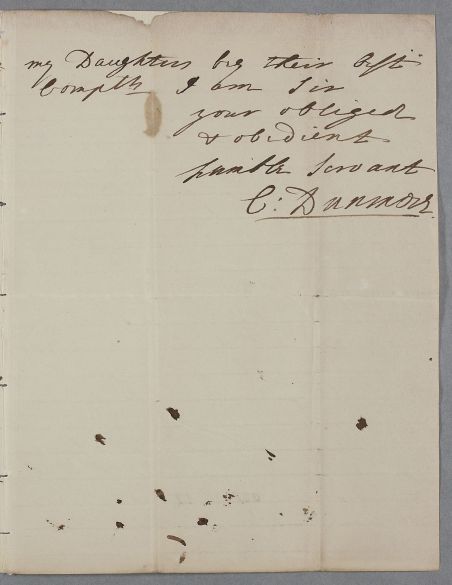 my Daughters beg their best
Complts I am Sir
your obliged
& obedient
humble Servant
C: Dunmore